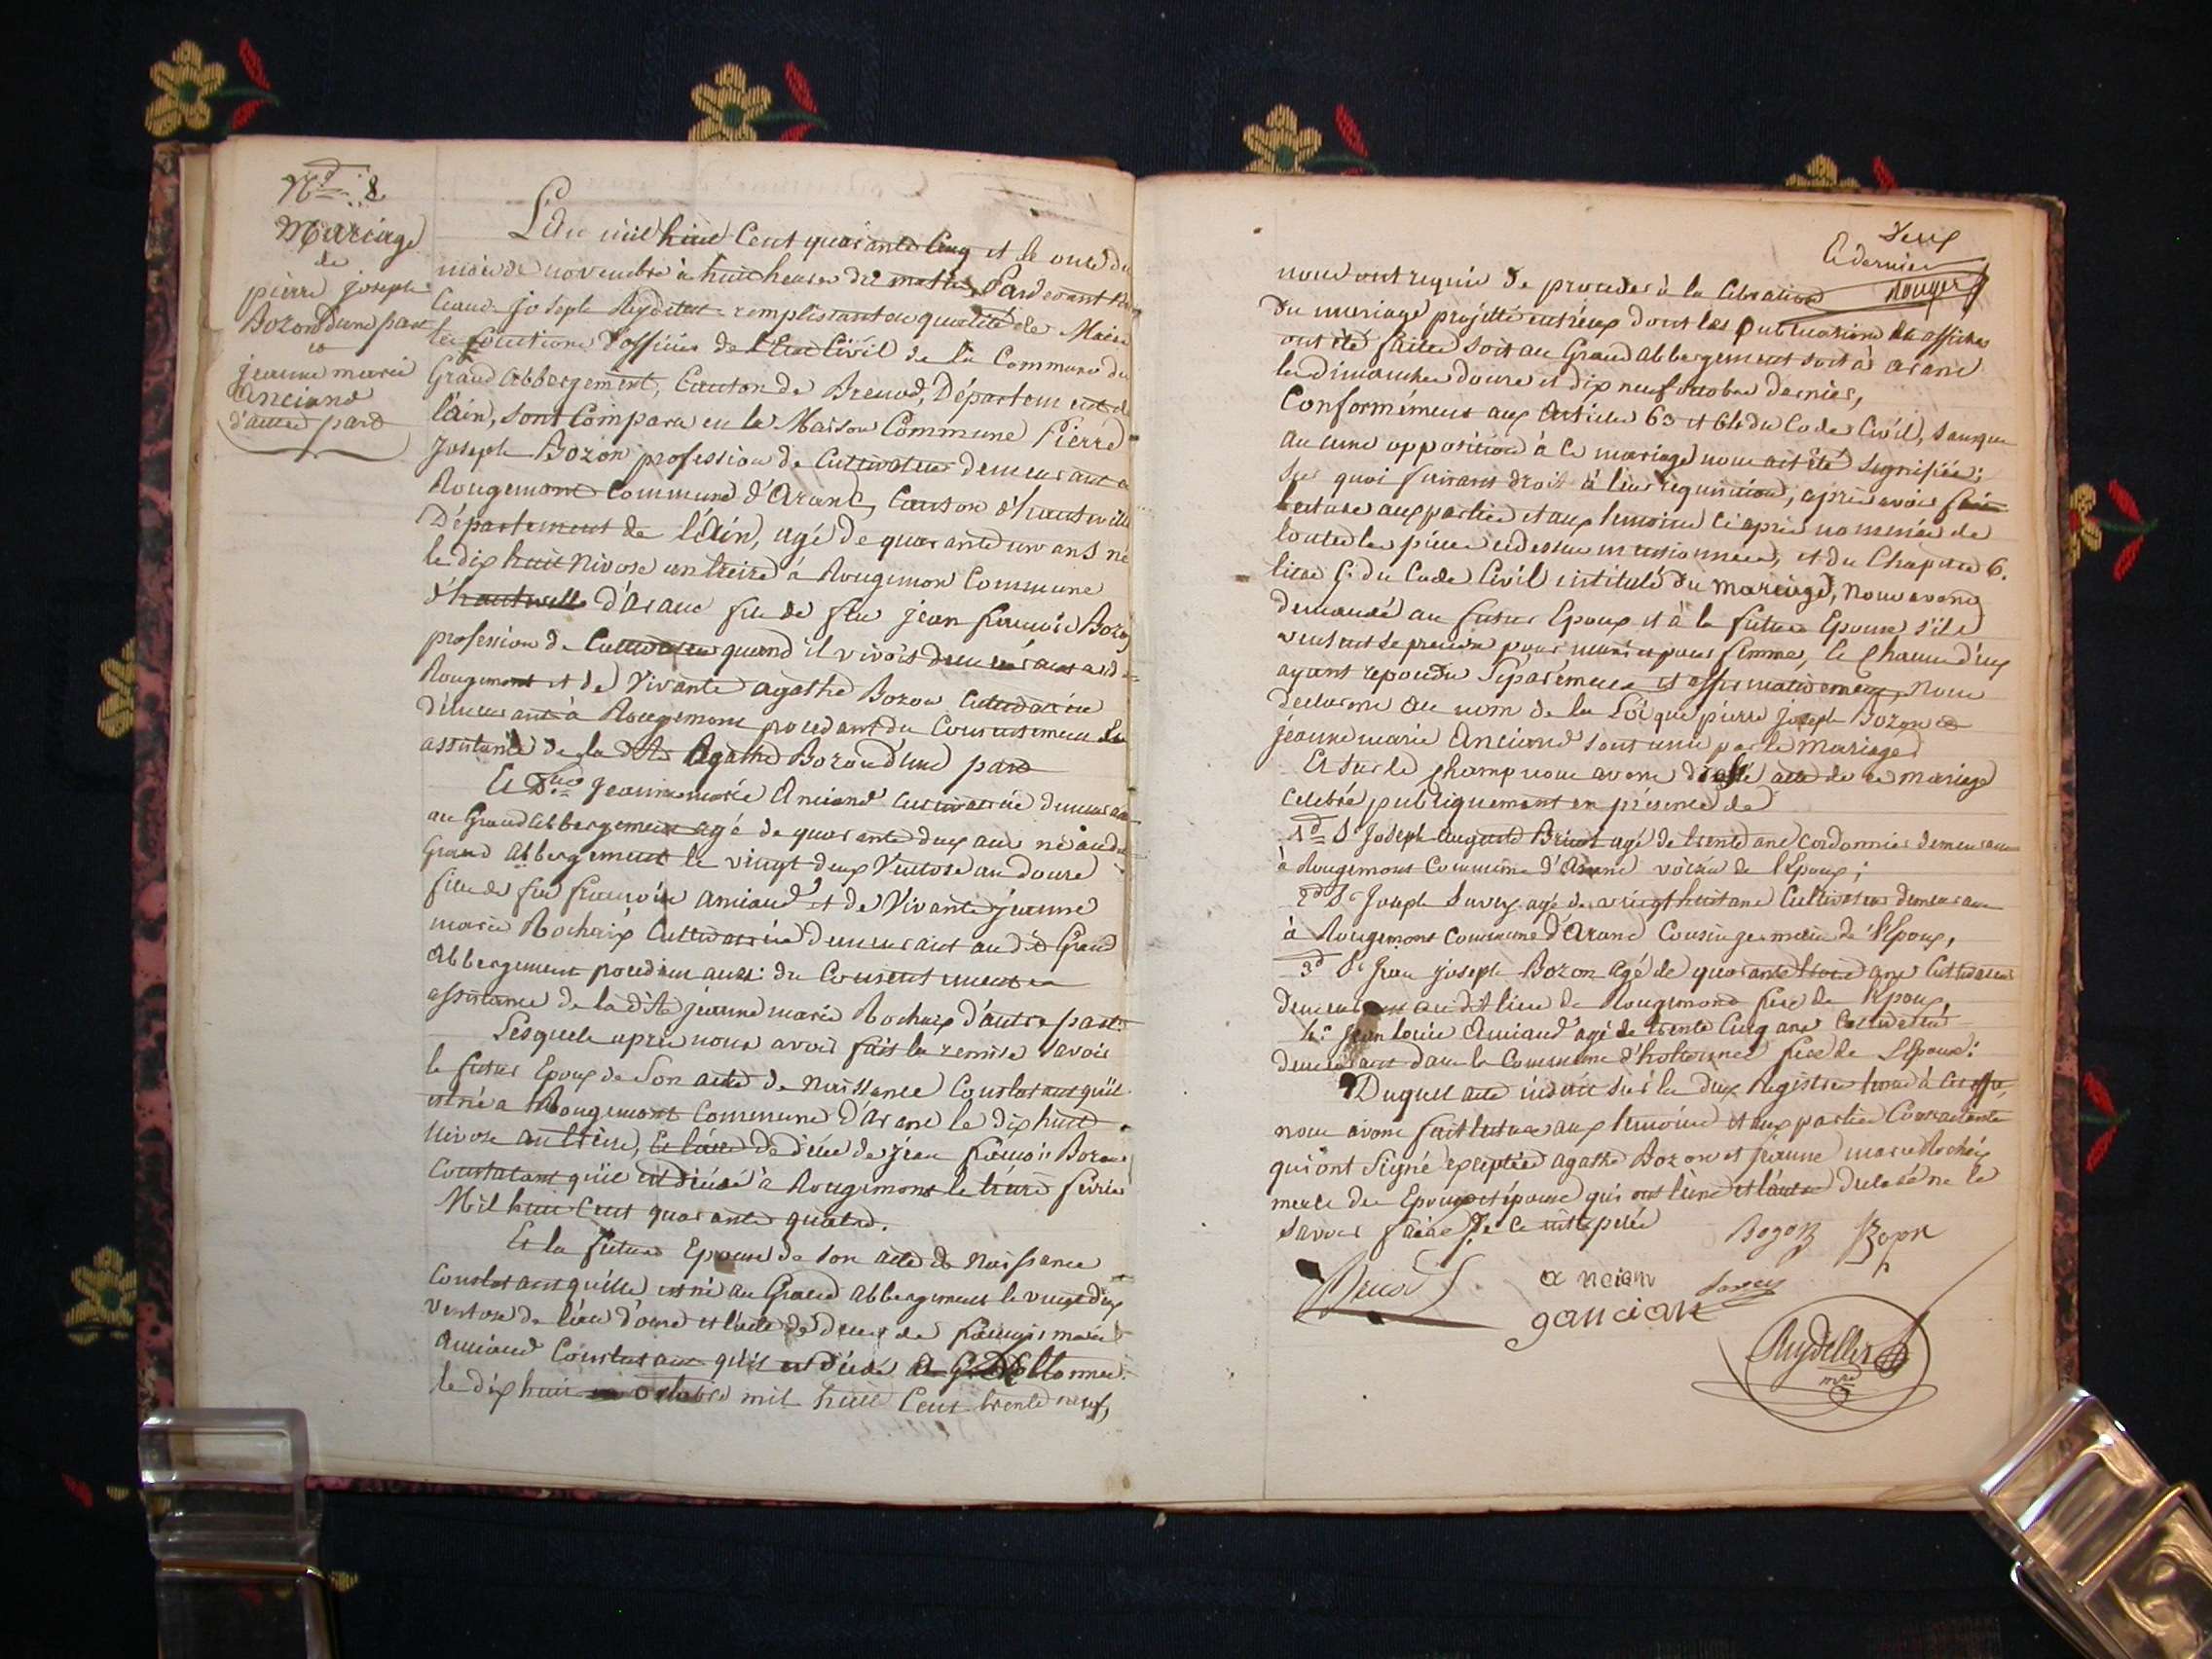 N° 8
Mariage
de
pierre joseph
Bozon d'une part
et
jeanne marie
Anciand
d'autre part
L'an mil huit Cent quarante Cinq et le onze du
mois de novembre à huit heures du matin, Pardevant Nous
Claude joseph Reydellet remplissant en qualité de Maire
les fonctions d'officier de l'Etat Civil de la Commune du
Grand abbergement, Canton de Brenod, Département de
l'ain, sont Comparu en la Maison Commune Pierre
Joseph Bozon profession de Cultivateur demeurant a
Rougemont Commune d'Aranc, Canton d'hauteville
Département de l'Ain, agé de quarante un ans né
le dix huit Nivose an treize à Rougemon Commune
d'hautville d'aranc fils de feu jean francois Bozon
profession de Cultivateur quand il vivoit demeurant aud.
Rougemont et de Vivante agathe Bozon Cultivatrice
demeurant à Rougemont procedant du Consentement et
assistance de la dite Agathe Bozon d'une part
Et Dlle Jeanne marie Anciand Cultivatrice demeurant
au Grand abbergement agé de quarante deux ans né audit
Grand abbergement le vingt deux Ventose an douze
fille de feu francois anciand et de Vivante jeanne
marie Rochaix Cultivatrice demeurant au dit Grand
abbergement procedant aussi du Consentement et
assistance de la dite jeanne marie Rochaix d'autre part
Lesquels apres nous avoir fait la remise savoir
le futur Epoux de Son acte de Naissance Constatant qu'il
est né a Rougemont Commune d'arane le dix huit
Nivose an treize, et l'acte de décès de jean francois Bozon
Constatant qu'il est décédé à Rougemont le treize fevrier
Mil huit Cent quarante quatre.
Et la future Epouse de son acte de Naissance
Constatant qu'elle est né au Grand abbergement le vingt deux
ventose de l'an douze et l'acte de deces de francois marie
anciand Constatant qu'il est décédé
le dix huit octobre mil huit Cent trente neuf,
deux
& dernier
Rouyer
nous ont requis de proceder à la Celebration
du mariage projetté entr'eux dont les publications et affiches
ont été faites soit au Grand abbergement soit à aranc
les dimanches douze et dix neuf octobre dernier,
Conformément aux Articles 63 et 64 du Code Civil, sans que
aucune opposition à Ce mariage nous ait été signifiée;
sur quoi faisant droit à leur requisition, après avoir fait
lecture aux parties et aux temoins Ci après nommés de
toutes les pieces cidessus mentionnées, et du Chapitre 6.
titre 5. du Code Civil intitulé du Mariage, Nous avons
demandé au futur Epoux et à la future Epouse s'ils
veulent se prendre pour mari et pour femme, et Chacun d'eux
ayant repondu Séparément et affirmativement, Nous
declarons au nom de la Loi que pierre joseph Bozon et
jeanne marie Anciand sont unis par le mariage
Et sur le Champ nous avons dressé acte de ce mariage
Celebré publiquement en présence de
1° Sr Joseph auguste Brunot agé de trente ans Cordonnier demeurant
à Rougemont Commune d'aranc voisin de l'Epoux;
2° Sr Joseph Savey agé de vingt huit ans Cultivateur demeurant
à Rougemont Commune d'Aranc Cousin germain de l'Epoux,
3° Sr Jean joseph Bozon agé de quarante trois ans Cultivateur
demeurant au dit lieu de Rougemont frere de l'Epoux,
4° Jean louis Anciand agé de trente Cinq ans Cultivateur
demeurant dans la Commune d'hotonnes frere de l'Epouse:
Duquel acte inscrit sur les deux Registres tenus à Cet effet,
nous avons fait lecture aux temoins et aux parties Contractantes
qui ont Signé exceptée agathe Bozon et jeanne marie Rochaix
mere des Epoux et épouse qui ont l'une et l'autre declaré ne le
savoir faire de ce interpelée
Bozon Bozon
Brunot
ancian Savey
gancian
Reydellet
mre